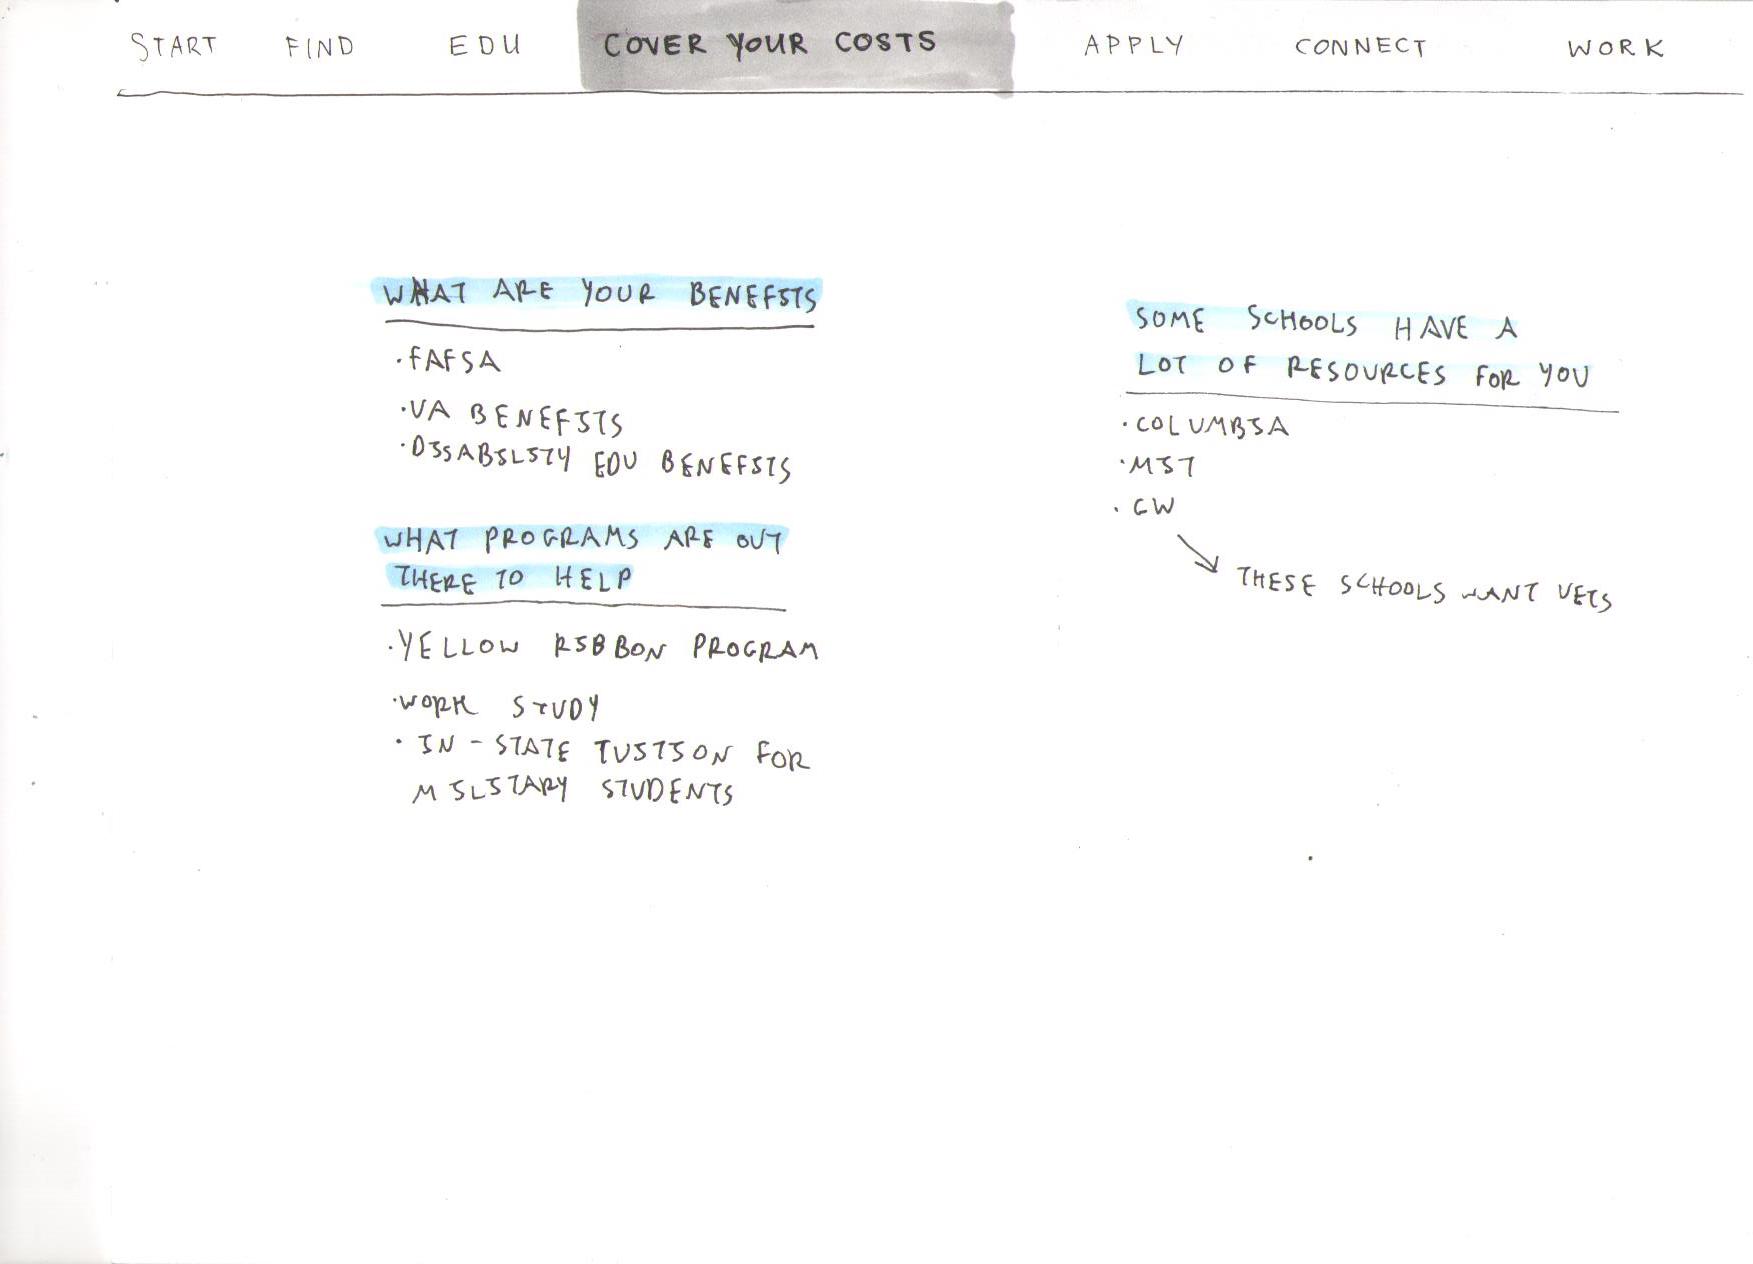 START FIND EDU COVER YOUR COSTS APPLY CONNECT WORK
WHAT ARE YOUR BENEFITS
·FAFSA
·VA BENEFITS
·DISABILITY EDU BENEFITS
WHAT PROGRAMS ARE OUT
THERE TO HELP
·YELLOW RIBBON PROGRAM
·WORK STUDY
· IN-STATE TUITION FOR
MILITARY STUDENTS
SOME SCHOOLS HAVE A
LOT OF RESOURCES FOR YOU
·COLUMBIA
·MIT
·GW
THESE SCHOOLS WANT VETS